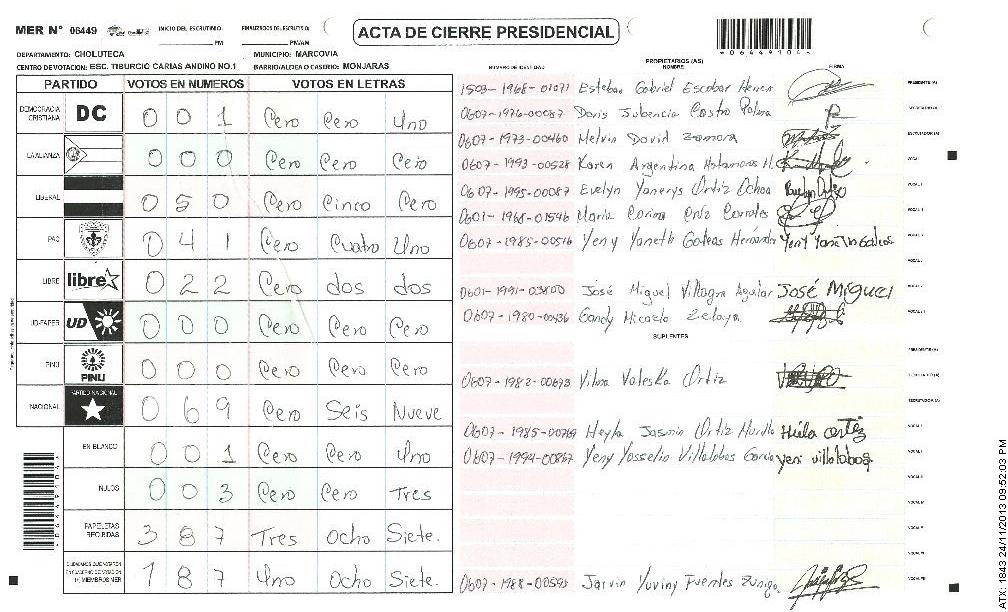 MER N° 06449 INICIO DEL ESCRUTINIO FINALIZADO EL ESCRUTINIO
PM PM/AM
ACTA DE CIERRE PRESIDENCIAL
DEPARTAMENTO: CHOLUTECA MUNICIPIO: MARCOVIA
CENTRO DE VOTACION: ESC. TIBURCIO CARIAS ANDINO NO.1 BARRIO/ALDEA O CASERIO: MONJARAS
PARTIDO VOTOS EN NUMEROS VOTOS EN LETRAS
DEMOCRACIA CRISTIANA DC 0 0 1 Cero Cero Uno
LA ALIANZA 0 0 0 Cero Cero Cero
LIBERAL 0 5 0 Cero Cinco Cero
PAC 0 4 1 Cero Cuatro Uno
LIBRE libre 0 2 2 Cero dos dos
UD-FAPER UD 0 0 0 Cero Cero Cero
PINU PINU 0 0 0 Cero Cero Cero
NACIONAL PARTIDO NACIONAL 0 6 9 Cero Seis Nueve
EN BLANCO 0 0 1 Cero Cero Uno
NULOS 0 0 3 Cero Cero Tres
PAPELETAS RECIBIDAS 3 8 7 Tres Ocho Siete.
1 8 7 Uno Ocho Siete.
PROPIETARIOS (AS)
NUMERO DE IDENTIDAD NOMBRE FIRMA
1503-1968-01071 Esteban Gabriel Escobar PRESIDENTE (A)
0607-1976-00087 Doris Jubencia Castro Palma SECRETARIO (A)
0607-1973-00460 Melvin David Zamora ESCRUTADOR (A)
0607-1993-00528 Karen Argentina Matamoros H.
0607-1995-00087 Evelyn Yanerys Ortiz Ochoa
0601-1968-01546 Maria Corina Ortiz Corrales
0607-1985-00516 Yeny Yaneth Galeas Hernández Yeny Yaneth Galeas
0601-1991-03800 José Miguel Villagra Aguilar José Miguel
0607-1980-00436 Gandy Micaela Zelaya
SUPLENTES
PRESIDENTE (A)
0607-1982-00693 Vilma Valeska Ortiz
SECRETARIO (A)
0607-1985-00769 Heyla Jasmin Ortiz Heila ortiz
0607-1994-00867 Yeny Yosselin Villalobos Garcia yeni villalobos
0607-1988-00595 Jarvin Yuviny Fuentes Zuniga
06449104
ATX: 1843 24/11/2013 09:52:03 PM